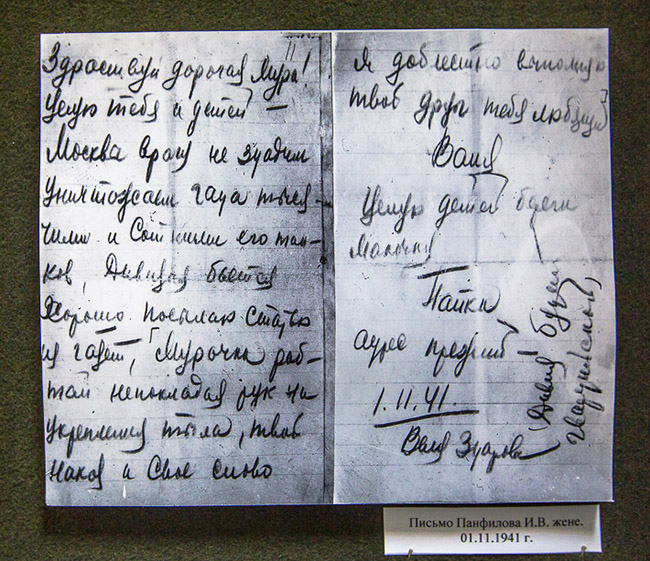 Здраствуй дорогая Мура!
Целую тебя и детей —
Москва врагу не здадим
уничтожаем гада тыся-
чами и сотнями его тан-
ков, Дивизия бьется
хорошо. посылаю статью
из газет, Мурочка рабо-
тай непокладая рук на
укрепления тыла, твой
наказ и свое слово
Я доблестно выполняю
твой друг тебя любящий
Ваня
Целую детей береги
Макочка
Папки
адрес прежний
1.11.41.
Валя Здорова
Дивизия будет
гвардейской
Письмо Панфилова И.В. жене.
01.11.1941 г.